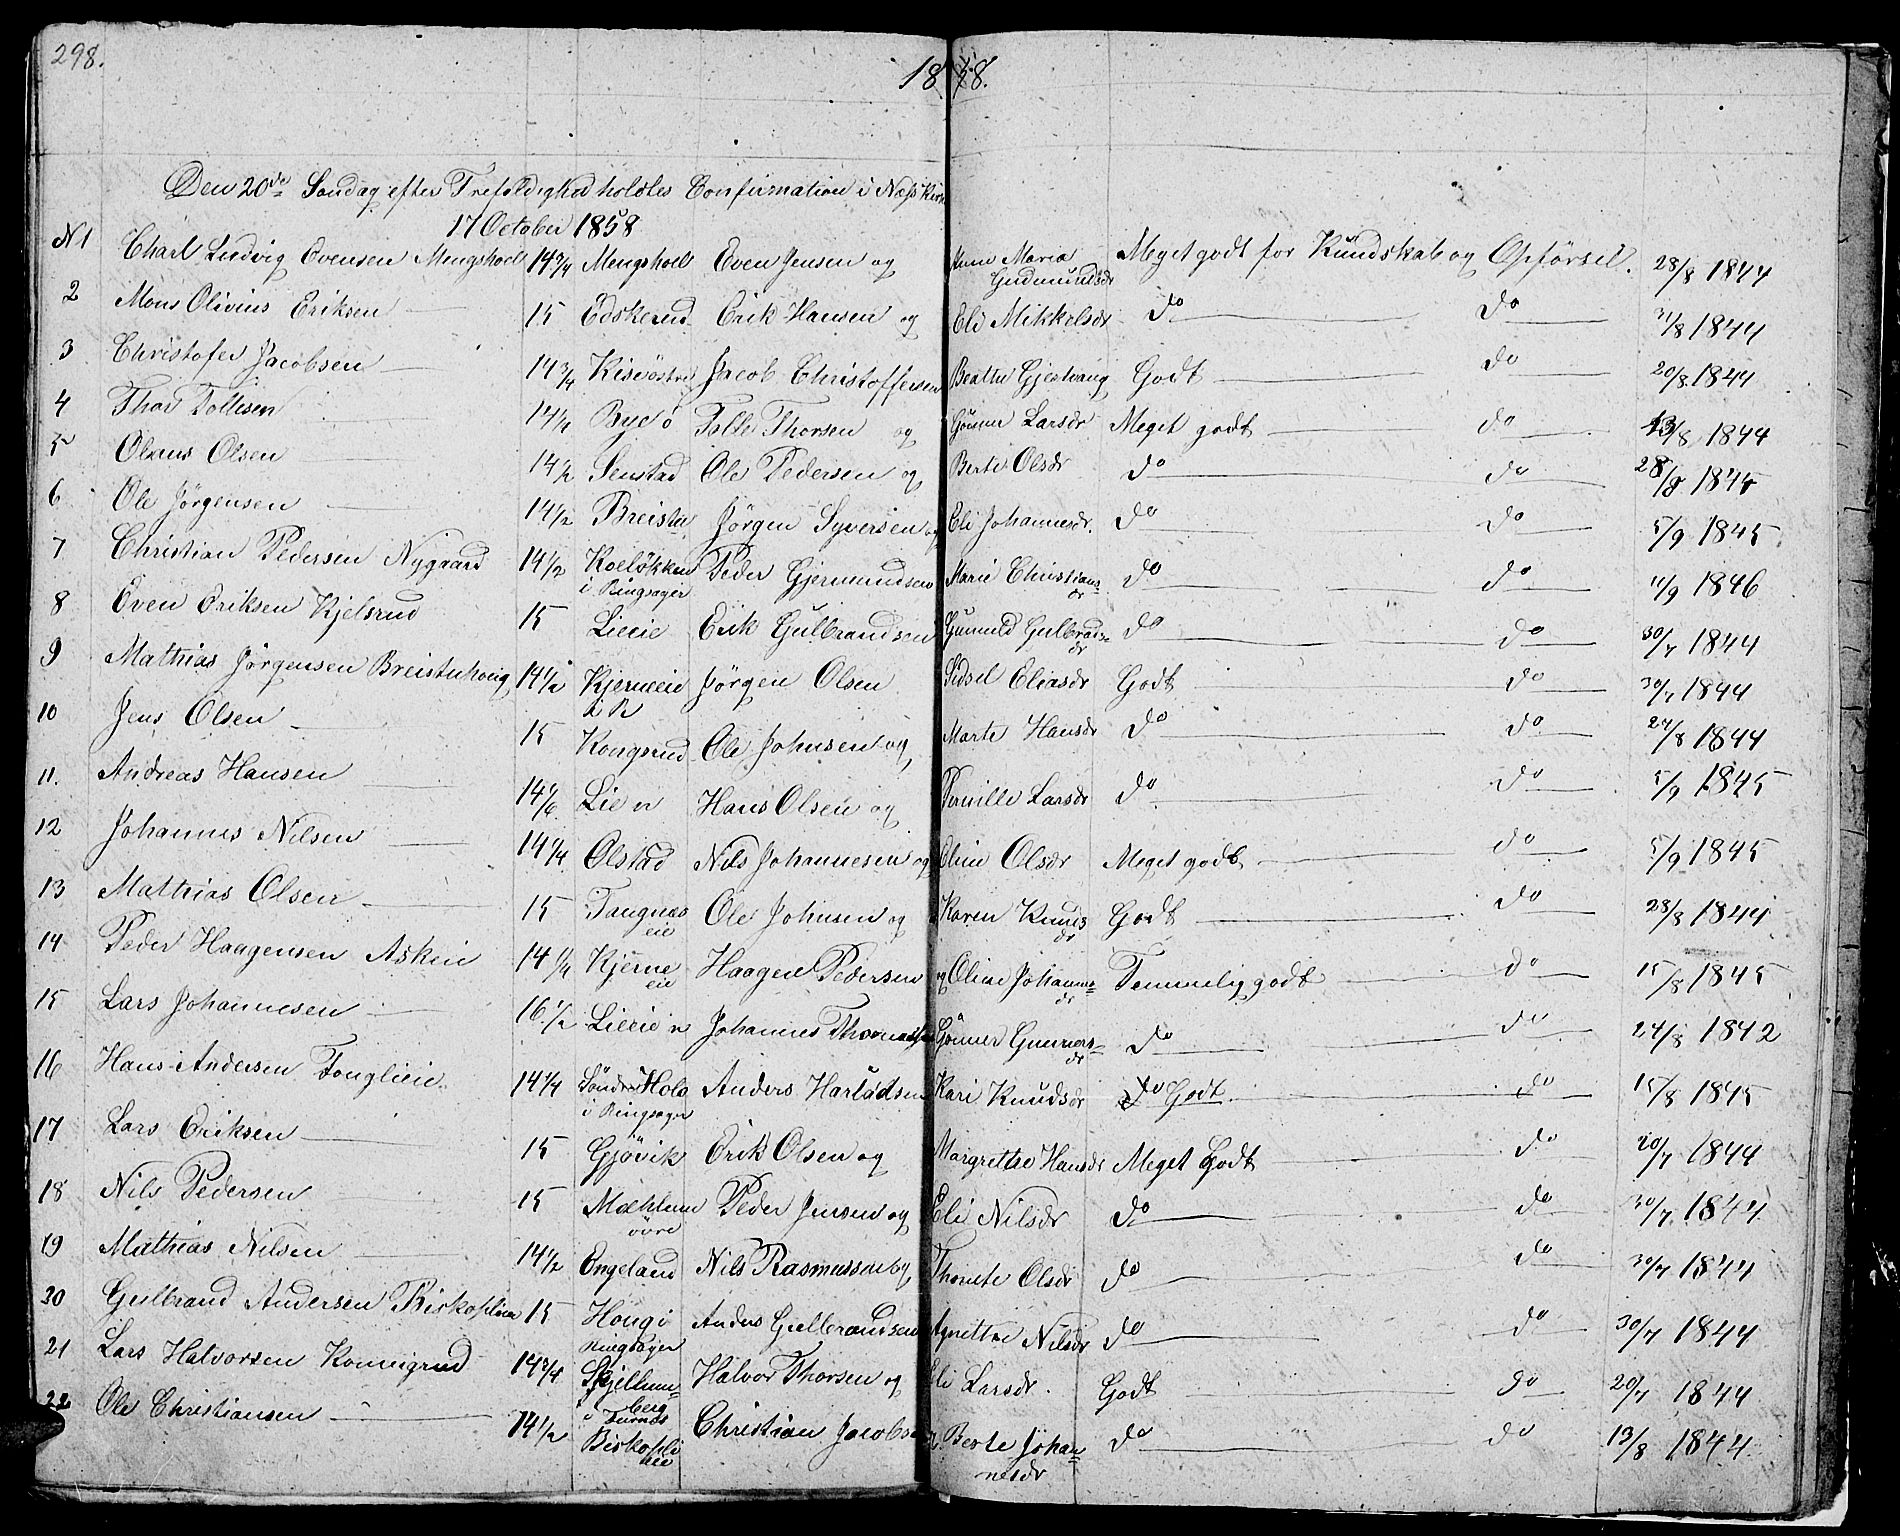 298.
1858.
Den 20de Søndag efter Trefoldighed holdtes Confirmation i Næss Kirke
17 October 1858
N1 Charl Ludvig Evensen Mengshoel 14 3/4 Mengshoel Even Jensen og Anne Maria Gudmundsdr Meget godt for Kundskab og Opførsel. 28/8 1844
2 Mons Olivius Eriksen 15 Edskerud Erik Hansen og Eli Mikkelsdr do do 11/8 1844
3 Christofer Jacobsen 14 3/4 Kise østre Jacob Christoffersen Beathe Gjestvang Godt do 20/8 1844
4 Thor Tollesen 14 1/4 Bye ø Tolle Thorsen og Gønner Larsdr Meget godt do 13/8 1844
5 Olaus Olsen 14 1/2 Senstad Ole Pedersen og Berte Olsdr do do 28/8 1845
6 Ole Jørgensen 14 1/2 Breistu Jørgen Syversen og Eli Johannesdr. do do 5/9 1845
7 Christian Pedersen Nygaard 14 1/2 Koeløkken i Ringsager Peder Gjermundsen Marie Christiansdr do do 11/9 1846
8 Even Eriksen Kjelsrud 15 Lieeie Erik Gulbrandsen Gunnild Gulbradsdr do do 30/7 1844
9 Mathias Jørgensen Breistuhoug 14 1/2 Kjerneeie Jørgen Olsen Sidsel Eliasdr Godt do 30/7 1844
10 Jens Olsen 15 Kongsrud Ole Johnsen og Marte Hansdr do do 27/8 1844
11. Andreas Hansen 14 Lie n Hans Olsen og Pernille Larsdr do do 5/9 1845
12 Johannes Nilsen 14 1/4 Olstad Nils Johannesen og Eline Olsdr Meget godt do 5/9 1845
13 Mathias Olsen 15 Tangnæs eie Ole Johnsen og Karen Knudsdr Godt do 28/8 1844
14 Peder Haagensen Askeie 14 1/4 Kjerne eie Haagen Pedersen og Oline Johannesdr Temmelig godt do 15/8 1845
15 Lars Johannesen 16 1/2 Lieeie n Johannes Thomassen Gønner Gunnersdr do do 24/8 1842
16 Hans Andersen Fonglieie 14 1/4 Søndre Holo i Ringsager Anders Harladsen Kari Knudsdr do Godt do 15/8 1845
17 Lars Eriksen 15 Gjøvik Erik Olsen og Margrethe Hansdr Meget Godt do 20/7 1844
18 Nils Pedersen 15 Mæhlum øvre Peder Jensen og Eli Nilsdr do do 30/7 1844
19 Mathias Nilsen 14 1/2 Engeland Nils Rasmussen og Thonete Olsdr do do 30/7 1844
20 Gulbrand Andersen Biskoplien 15 Houg i Ringsager Anders Gulbrandsen Agnethe Nilsdr do do 30/7 1844
21 Lars Halvorsen Konnigrud 14 3/4 Skjellumberg i Furnæs Halvor Thorsen og Eli Larsdr. Godt do 20/7 1844
22 Ole Christiansen 14 1/2 Biskoplieie Christian Jacobsen Berte Johannesdr do do 13/8 1844